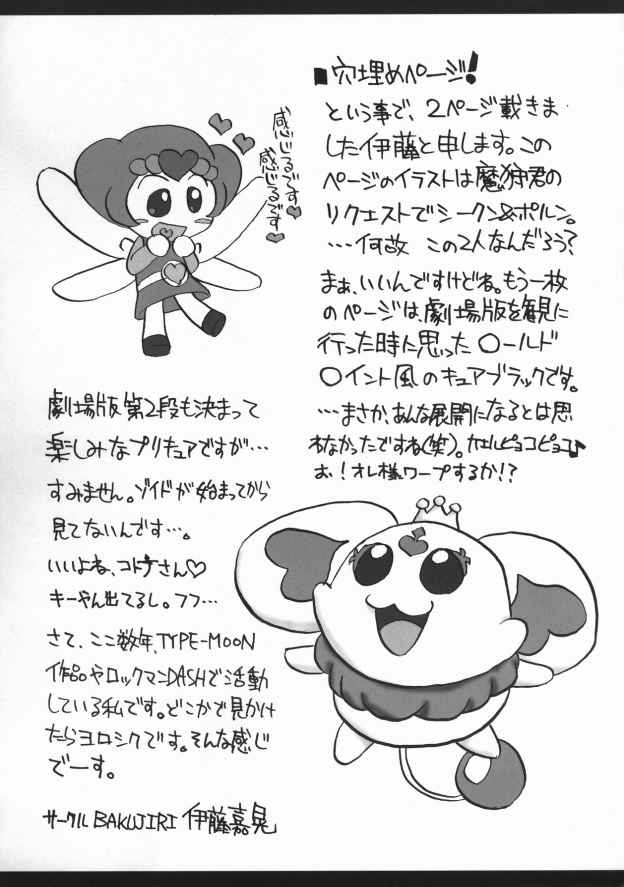 ■穴埋めページ!
という事で、2ページ載きま
した伊藤と申します。この
ページのイラストは魔狩君の
リクエストでシークン&ポルン。
…何故 この2人なんだろう?
まぁ、いいんですけどね。もう一枚
のページは、劇場版を観に
行った時に思った〇ールド
〇イント風のキュアブラックです。
…まさか、あんな展開になるとは思
わなかったですね(笑)。カエルピョコピョコ♪
お!オレ様、ワープするか!?
感じるです♥
感じるです♥
劇場版第2段も決まって
楽しみなプリキュアですが…
すみません。ゾイドが始まってから
見てないんです…。
いいよね、コトナさん♡
キーやん出てるし。フフ…
さて、ここ数年、TYPE-MOON
作品やロックマンDASHで活動
している私です。どこかで見かけ
たらヨロシクです。そんな感じ
でーす。
サークル BAKUJIRI 伊藤嘉晃